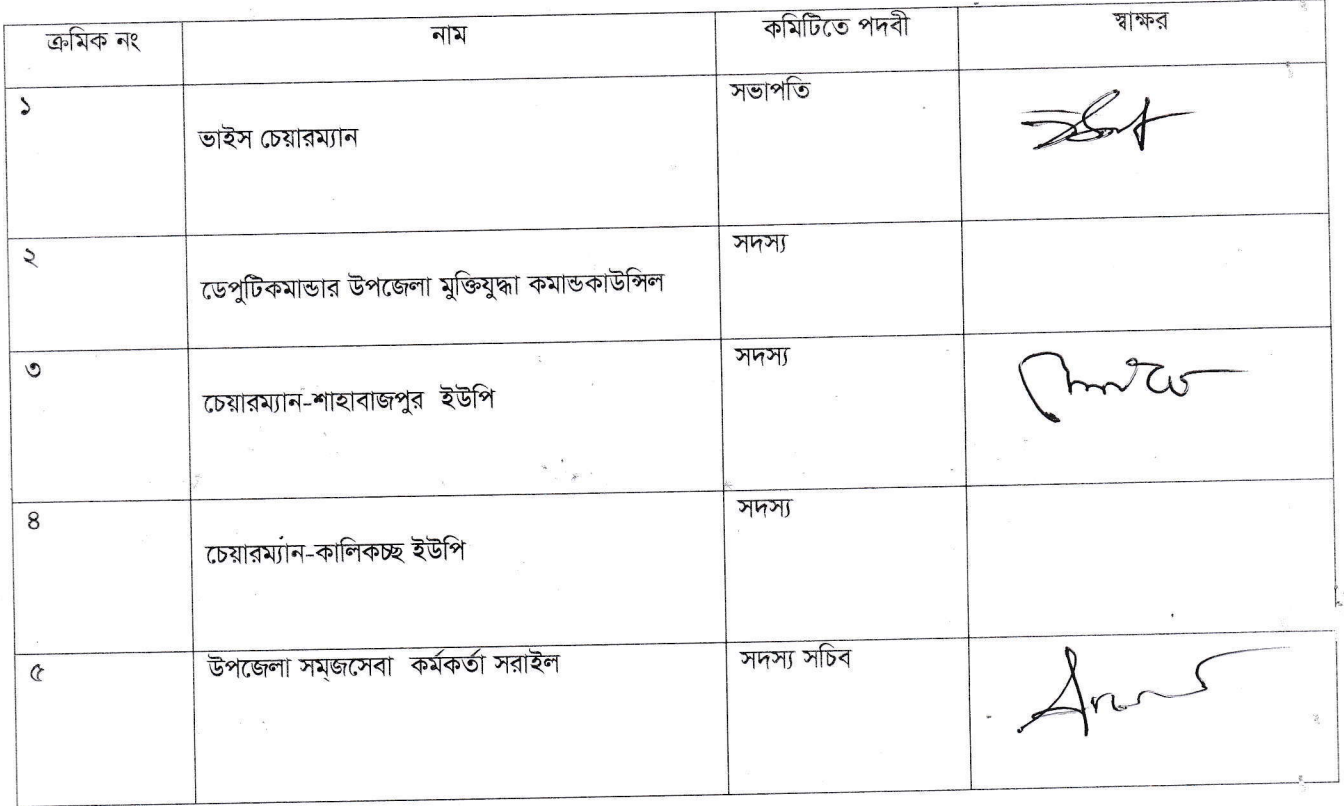 ক্রমিক নং নাম কমিটিতে পদবী স্বাক্ষর
১ ভাইস চেয়ারম্যান সভাপতি
২ ডেপুটিকমান্ডার উপজেলা মুক্তিযুদ্ধা কমান্ডকাউন্সিল সদস্য
৩ চেয়ারম্যান-শাহাবাজপুর ইউপি সদস্য
৪ চেয়ারম্যান-কালিকচ্ছ ইউপি সদস্য
৫ উপজেলা সমুজসেবা কর্মকর্তা সরাইল সদস্য সচিব